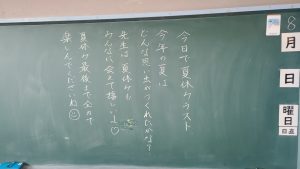 今日で夏休みラスト
今年の夏は
どんな思い出がつくれたかな?
先生は夏休みも
みんなに会えて嬉しいよ♡
夏休み最後まで全力で
楽しんでくださいね☺
8
月
日
曜日
日直